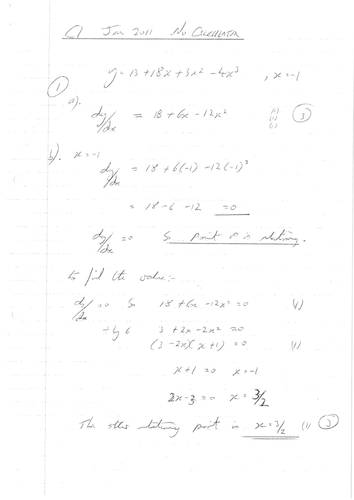 C1 Jan 2011 No Calculator
y = 13 + 18x + 3x² - 4x³ , x = -1
(1)
a). dy/dx = 18 + 6x - 12x² (1) (1) (1) (3)
b). x = -1
dy/dx = 18 + 6(-1) - 12(-1)²
= 18 - 6 - 12 = 0
dy/dx = 0 So point P is stationary.
to find the value:-
dy/dx = 0 So 18 + 6x - 12x² = 0 (1)
÷ by 6 3 + 2x - 2x² = 0
(3 - 2x)(x + 1) = 0 (1)
x + 1 = 0 x = -1
2x - 3 = 0 x = 3/2
The other stationary point is x = 3/2 (1) (3)